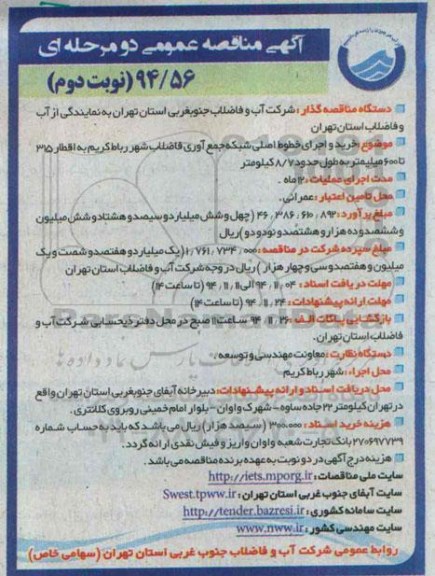 آگهی مناقصه عمومی دو مرحله ای
۹۴/۵۶ (نوبت دوم)
دستگاه مناقصه گذار: شرکت آب و فاضلاب جنوبغربی استان تهران به نمایندگی از آب
و فاضلاب استان تهران
موضوع: خرید و اجرای خطوط اصلی شبکه جمع آوری فاضلاب شهر رباط کریم به اقطار ۳۱۵
تا ۶۰۰ میلیمتر به طول حدود ۸/۷ کیلومتر
مدت اجرای عملیات: ۱۲ ماه.
محل تامین اعتبار: عمرانی.
مبلغ برآورد: ۴۶،۳۸۶،۶۱۰،۸۹۲ (چهل و شش میلیارد و سیصد و هشتاد و شش میلیون
و ششصد و ده هزار و هشتصد و نود و دو) ریال
مبلغ سپرده شرکت در مناقصه: ۱،۷۶۱،۷۳۴،۰۰۰ (یک میلیارد و هفتصد و شصت و یک
میلیون و هفتصد و سی و چهار هزار) ریال در وجه شرکت آب و فاضلاب استان تهران
مهلت دریافت اسناد: ۹۴،۱۱،۰۴ الی ۹۴،۱۱،۱۱ (تا ساعت ۱۴)
مهلت ارائه پیشنهادات: ۹۴،۱۱،۲۴ (تا ساعت ۱۴)
بازگشایی پاکات الف: ۹۴،۱۱،۲۶ ساعت ۱۰ صبح در محل دفتر ذیحسابی شرکت آب و
فاضلاب استان تهران.
دستگاه نظارت: معاونت مهندسی و توسعه.
محل اجراء: شهر رباط کریم
محل دریافت اسناد و ارائه پیشنهادات: دبیرخانه آبفای جنوبغربی استان تهران واقع
در تهران کیلومتر ۲۲ جاده ساوه - شهرک واوان - بلوار امام خمینی روبروی کلانتری.
هزینه خرید اسناد: ۳۰۰،۰۰۰ (سیصد هزار) ریال می باشد که باید به حساب شماره
۲۷۰۶۹۷۷۳۹ بانک تجارت شعبه واوان واریز و فیش نقدی ارائه گردد.
هزینه درج آگهی در دو نوبت به عهده برنده مناقصه می باشد.
سایت ملی مناقصات: http://iets.mporg.ir
سایت آبفای جنوب غربی استان تهران: Swest.tpww.ir
سایت سامانه کشوری: http://tender.bazresi.ir
سایت مهندسی کشور: www.nww.ir
روابط عمومی شرکت آب و فاضلاب جنوب غربی استان تهران (سهامی خاص)